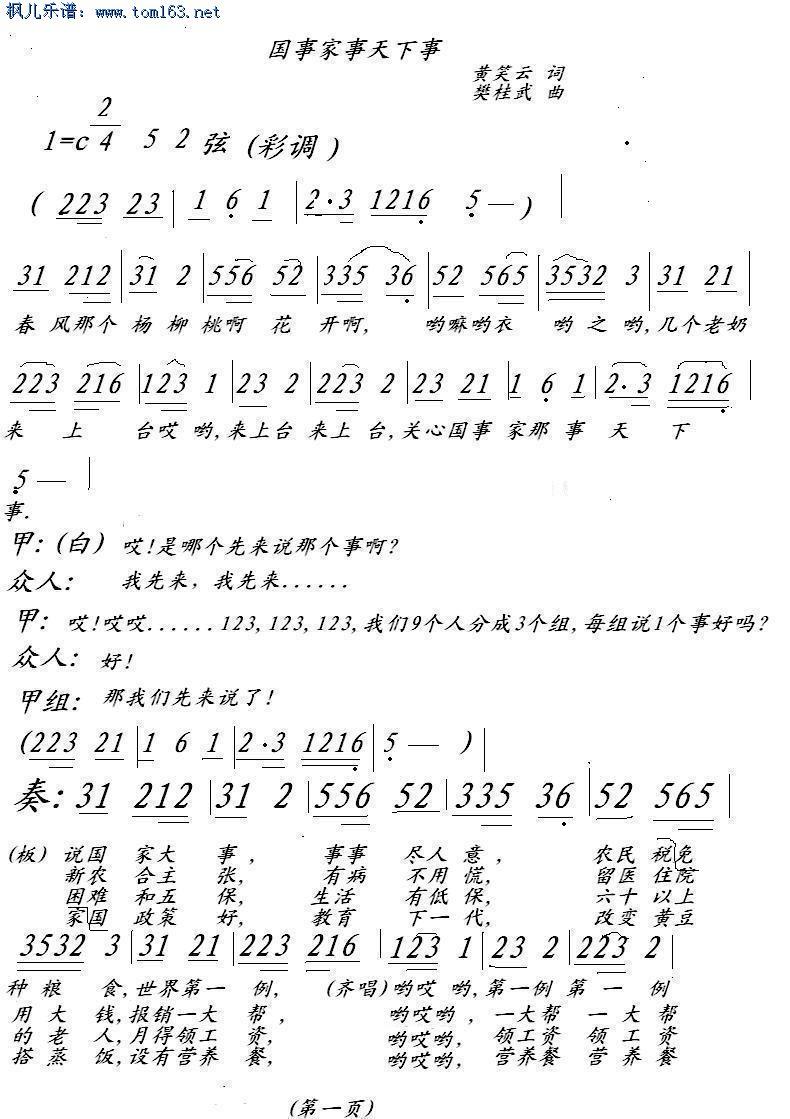 枫儿乐谱：www.tom163.net
国事家事天下事
黄笑云 词
樊桂武 曲
1=c 2/4 5 2 弦 (彩调)
( 223 23 | 1 6 1 | 2·3 1216 5 — ) |
31 212 | 31 2 | 556 52 | 335 36 | 52 565 | 3532 3 | 31 21 |
春 风那个 杨 柳 桃啊 花 开啊, 哟嘛哟衣 哟 之 哟,几个老奶
223 216 | 123 1 | 23 2 | 223 2 | 23 21 | 1 6 1 | 2·3 1216 |
来 上 台哎 哟,来上台 来上 台,关心国事 家那 事 天 下
5 — |
事.
甲:(白) 哎!是哪个先来说那个事啊?
众人: 我先来, 我先来......
甲: 哎!哎哎......123,123,123,我们9个人分成3个组,每组说1个事好吗?
众人: 好!
甲组: 那我们先来说了!
(223 21 | 1 6 1 | 2·3 1216 | 5 — ) |
奏: 31 212 | 31 2 | 556 52 | 335 36 | 52 565 |
(板) 说国 家大 事, 事事 尽人 意, 农民 税免
新农 合主 张, 有病 不用 慌, 留医 住院
困难 和五 保, 生活 有低 保, 六十 以上
家国 政策 好, 教育 下一 代, 改变 黄豆
3532 3 | 31 21 | 223 216 | 123 1 | 23 2 | 223 2 |
种 粮 食,世界第一 例, (齐唱)哟哎 哟,第一例 第 一 例
用 大 钱,报销一大 帮, 哟哎哟, 一大帮 一 大 帮
的 老 人,月得领工 资, 哟哎哟, 领工资 领 工 资
搭 蒸 饭,设有营养 餐, 哟哎哟, 营养餐 营 养 餐
(第一页)